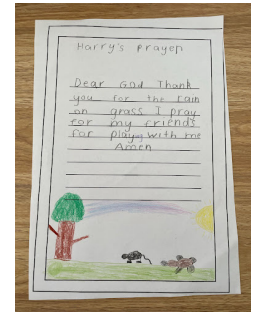 Harry's Prayer
Dear God Thank
you for the rain
on grass I pray
for my friends
for playing with me
Amen